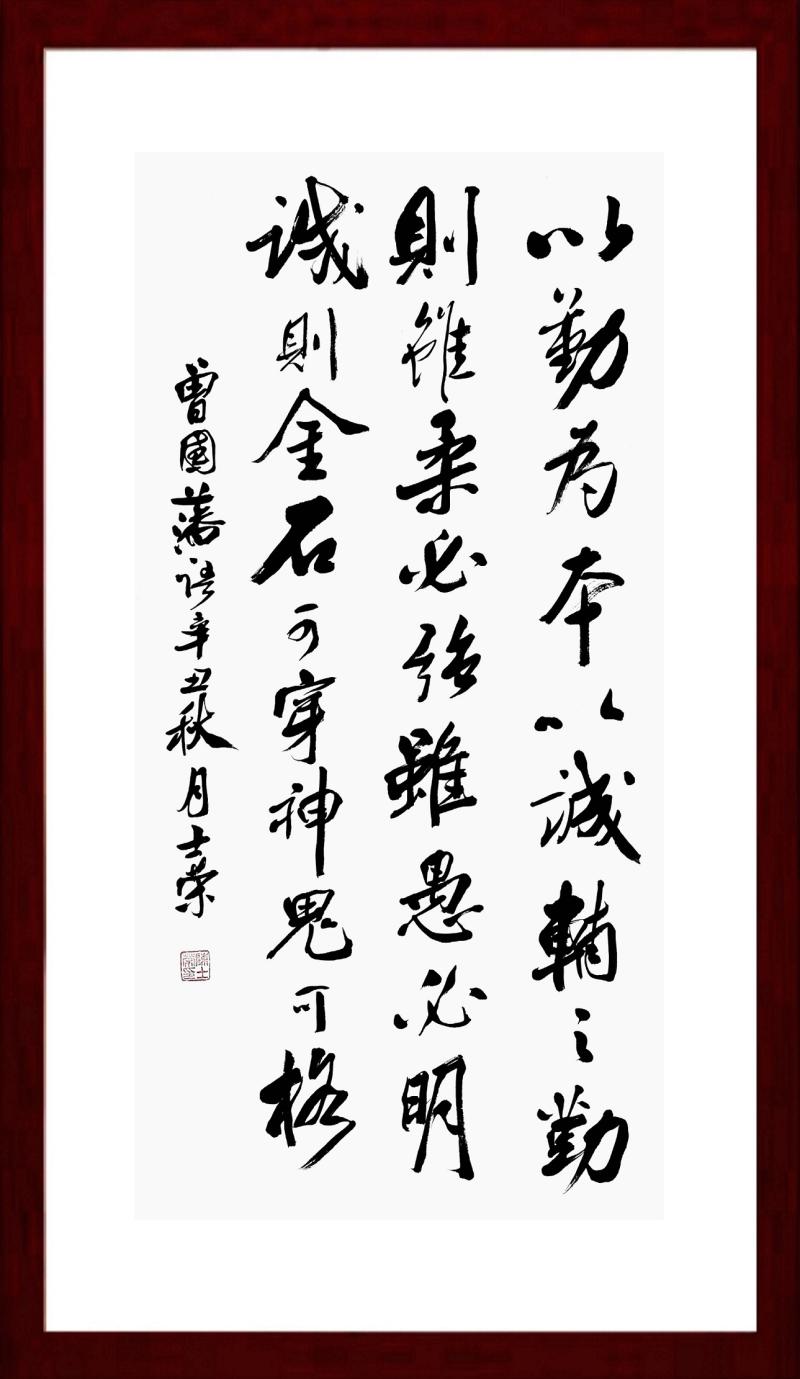 以勤為本以誠輔之勤
則雖柔必強雖愚必明
誠則金石可穿神鬼可格
曾國藩語辛丑秋月士榮